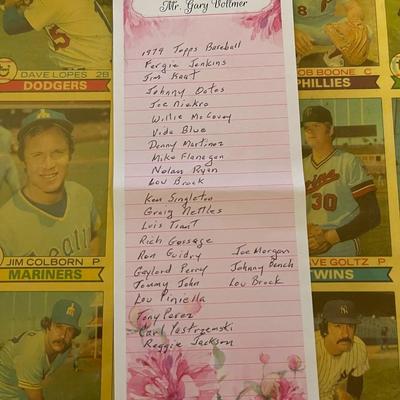 Mr. Gary Vollmer
1979 Topps Baseball
Fergie Jenkins
Jim Kaat
Johnny Oates
Joe Niekro
Willie McCovey
Vida Blue
Denny Martinez
Mike Flanagan
Nolan Ryan
Lou Brock
Ken Singleton
Graig Nettles
Luis Tiant
Rich Gossage
Ron Guidry Joe Morgan
Gaylord Perry Johnny Bench
Tommy John Lou Brock
Lou Piniella
Tony Perez
Carl Yastrzemski
Reggie Jackson
DAVE LOPES 2B
DODGERS
JIM COLBORN P
MARINERS
BOB BOONE C
PHILLIES
30
DAVE GOLTZ P
TWINS